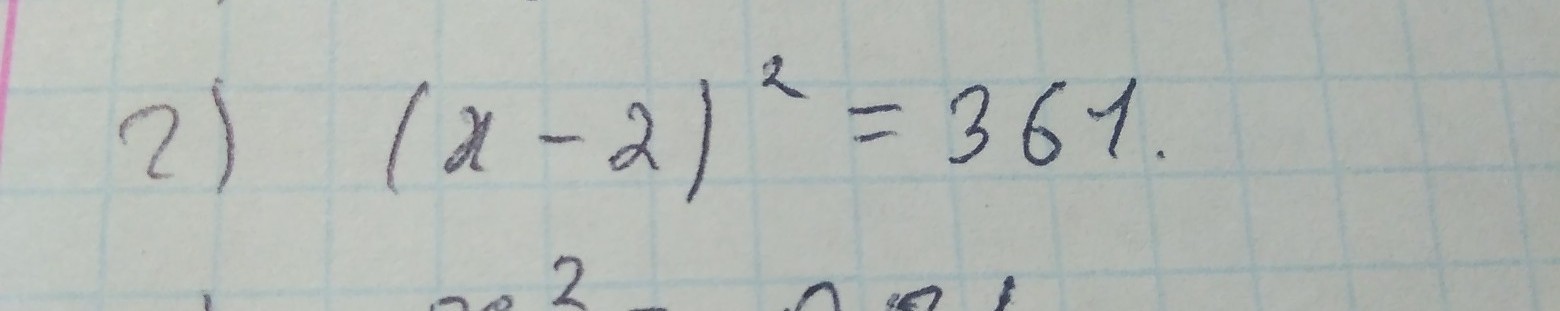 г) (x - 2)² = 361.